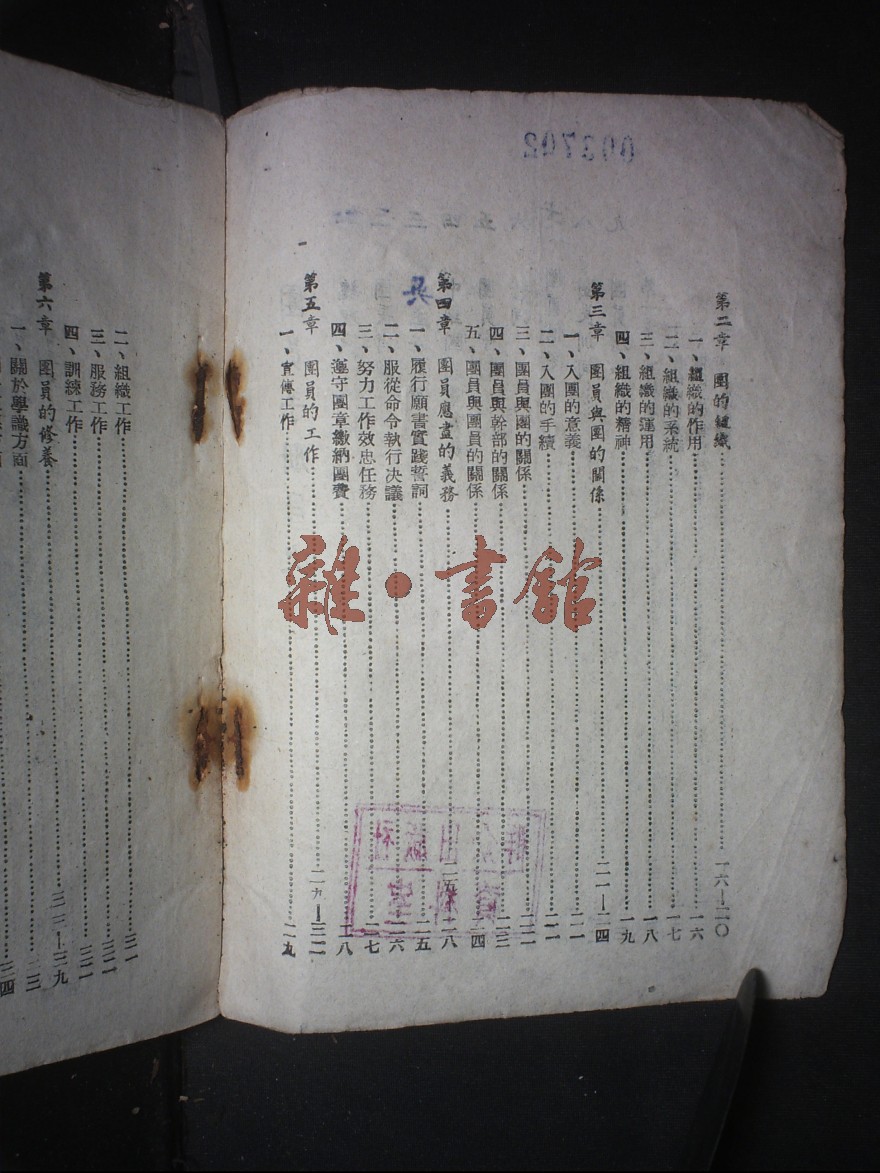 003702
第二章 團的組織……一六—二〇
一、組織的作用……一六
二、組織的系統……一七
三、組織的運用……一八
四、組織的精神……一九
第三章 團員與團的關係……二一—二四
一、入團的意義……二一
二、入團的手續……二一
三、團員與團的關係……二二
四、團員與幹部的關係……二三
五、團員與團員的關係……二四
第四章 團員應盡的義務……二五—二八
一、履行願書實踐誓詞……二五
二、服從命令執行决議……二六
三、努力工作效忠任務……二七
四、遵守團章繳納團費……二八
第五章 團員的工作……二九—三二
一、宣傳工作……二九
二、組織工作……三一
三、服務工作……三二
四、訓練工作……三二
第六章 團員的修養……三三—三九
一、關於學識方面……三三
雜·書館